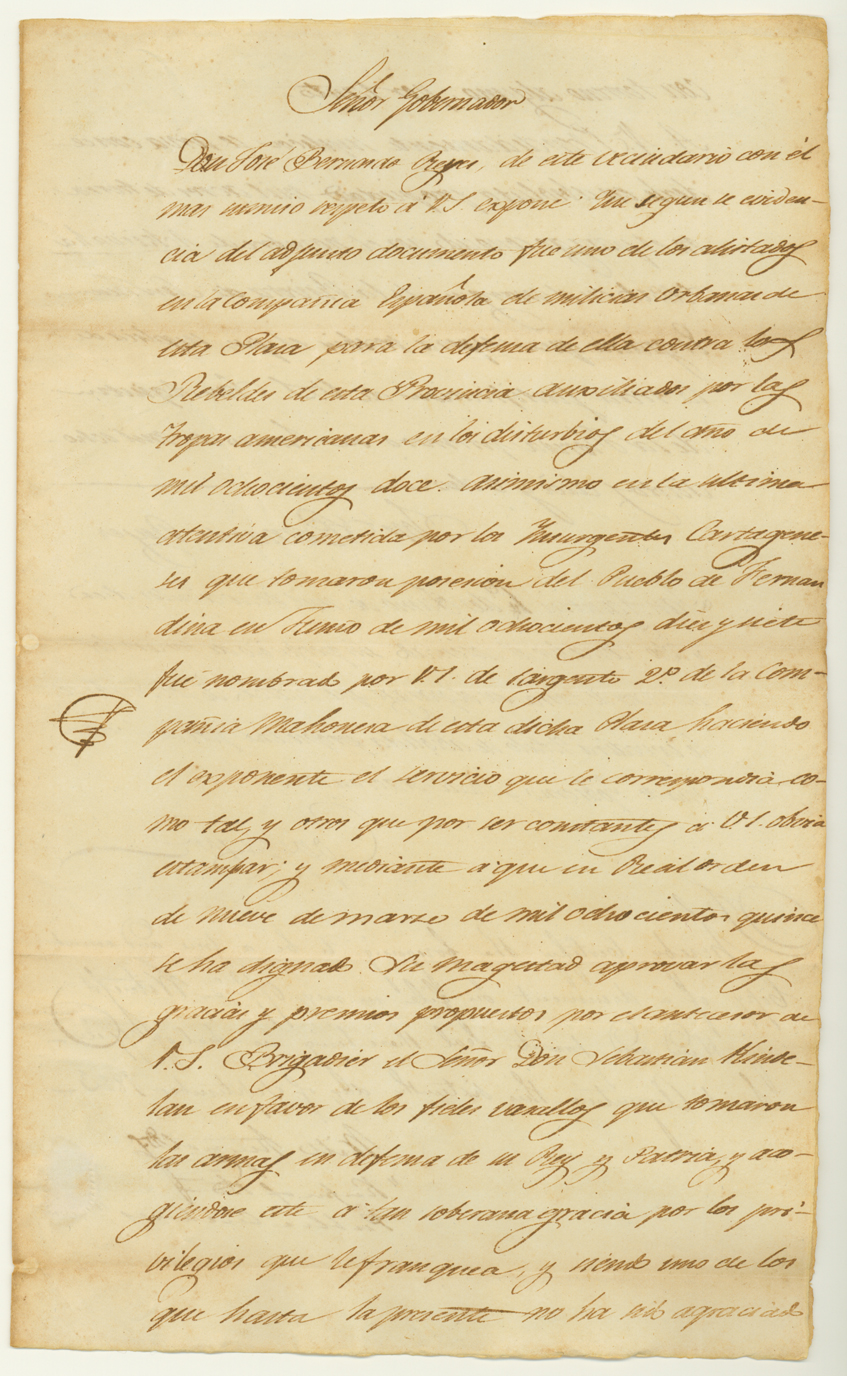 Señor Gobernador
Don José Bernardo Reyes, de este vecindario con él
mas sumiso respeto á V.S. expone: Que segun se eviden-
cia del adjunto documento fue uno de los alistados
en la Compañia Española de milicias Urbanas de
esta Plaza para la defensa de ella contra los
Rebeldes de esta Provincia auxiliados por las
tropas americanas en los disturbios del año de
mil ochocientos doce. asimismo en la ultima
atentiva cometida por los Insurgentes Cartagene-
ses que tomaron posesion del Pueblo de Fernan
dina en Junio de mil ochocientos diez y siete
fué nombrado por V.S. de sargento 2º. de la Com-
pañia Mahonesa de esta dicha Plaza, haciendo
el exponente el servicio que le correspondia co-
mo tal, y otros que por ser constantes á V.S. obvia
estampar; y mediante a que en Real orden
de nueve de marzo de mil ochocientos quince
se ha dignado Su Magestad aprovar las
gracias y premios propuestos por el antecesor de
V.S. Brigadier el Señor Don Sebastian Kinde-
lan en favor de los fieles vasallos que tomaron
las armas en defensa de su Rey y Patria, y aco-
giendose este á tan soberana gracia por los pri-
vilegios que le franquea, y siendo uno de los
que hasta la presente no ha sido agraciado